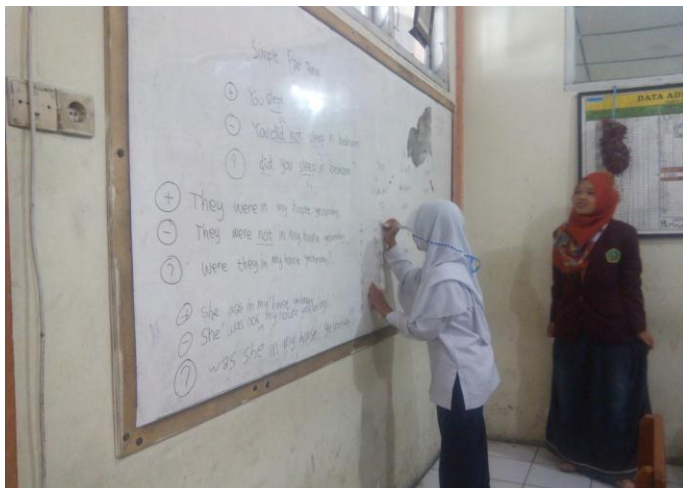 Simple Past Tense
+ You slept
- You did not sleep in bedroom
? did you sleep in bedroom
+ They were in my house yesterday
- They were not in my house yesterday
? were they in my house yesterday?
+ She was in my house yesterday
- She was not in my house yesterday
? was she in my house yesterday
DATA